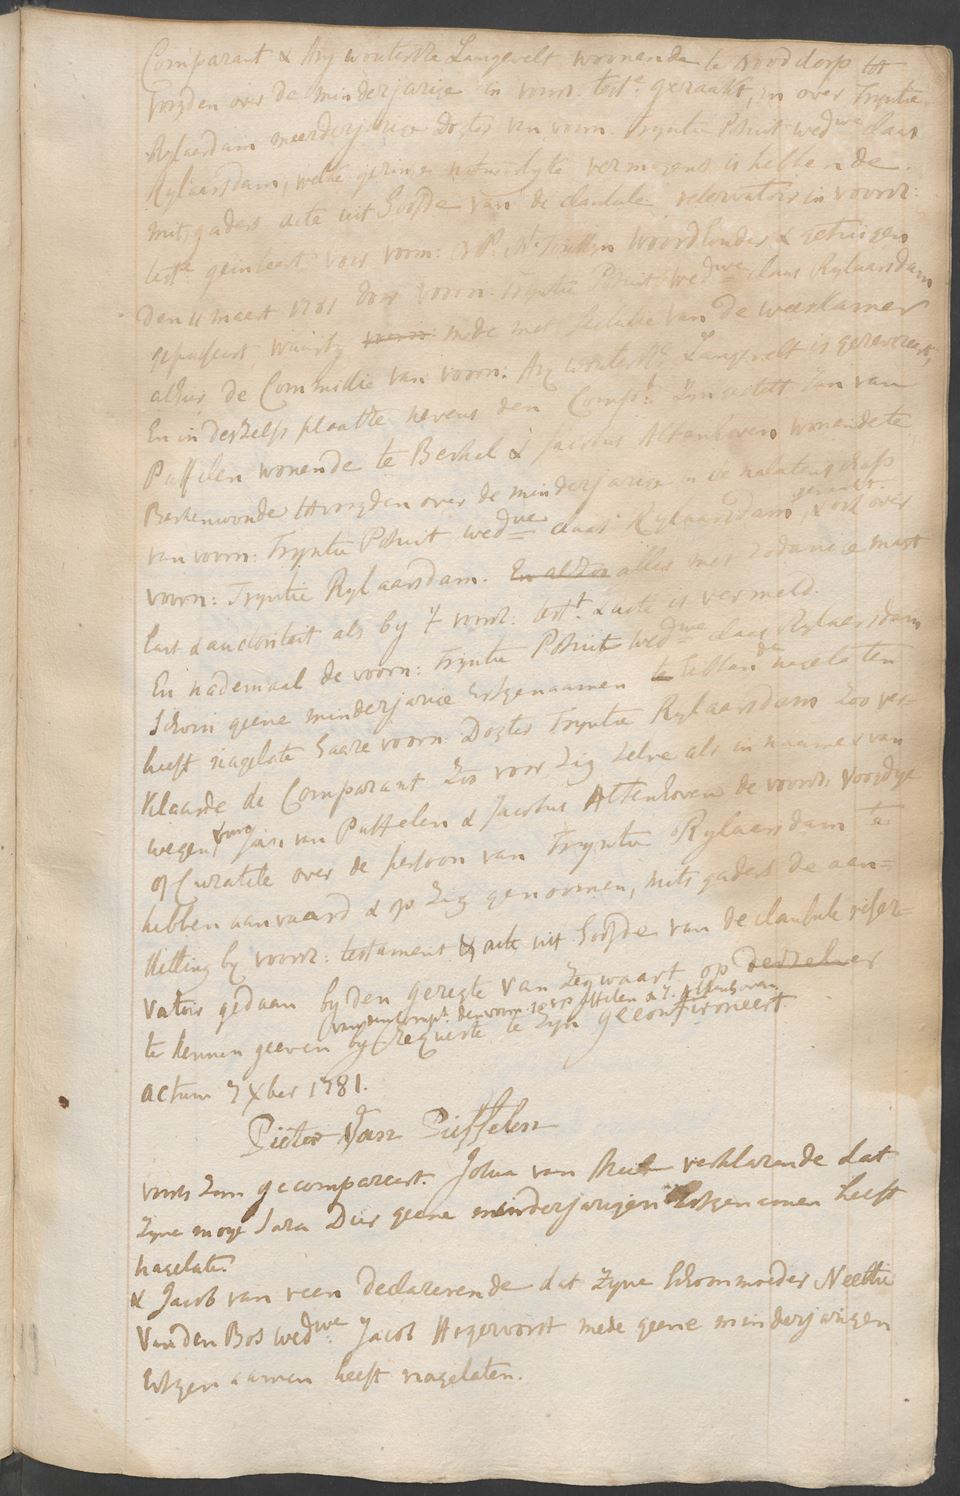 Comparant & Ary Woutersze Langevelt woonende te Nooddorp tot
voogden over de minderjarige in voorz. test.e geraakt, en over Tryntie
Rylaarsdam meerderjarige dogter van voorn. Tryntie Pruit wedwe Claas
Rylaarsdam, welke geringe natuurlyke vermogens is hebbende.
mitsgaders acte uit hoofde van de clausule reservatoir in voorz:
test.e geinsereert voor voorn: & getuigen
den 11 maert 1781 door voorn. Tryntie Pruit wedwe Claas Rylaarsdam
gepasseert, waarby mede met seclusie van de weeskamer
alhier de Commissie van voorn: Ary Woutersze Langevelt is gerevoceert,
En in deszelfs plaatse nevens den Compt: zyn gestelt Jan van
Puffelen wonende te Berkel & Jacobus Altenhoven wonende te
Berkenwoude tot voogden over de minderjarige in de nalatenschap
van voorn: Tryntie Pruit wedwe Claas Rylaarsdam geraakt, & ook over
voorn: Tryntie Rylaarsdam. En alzoo alles met zodanige magt
last & authoriteit als by 't voorz: test.t & acte is vermeld.
En nademaal de voorn: Tryntie Pruit wedwe Claas Rylaarsdam
schoon geene minderjarige Erfgenaamen te hebbende nagelaten
heeft nagelate haare voorn: Dogter Tryntie Rylaarsdam Zoo ver-
klaarde de Comparant Zoo voor Zig Zelve als in naame & van
wegen voorn Jan van Puffelen & Jacobus Altenhoven de voorz: voogdye
of Curatele over de persoon van Tryntie Rylaarsdam te
hebben aanvaard & op Zig genoomen, mitsgaders de aan=
stelling by voorz: testament & acte uit hoofde van de clausule reser=
vatoir gedaan by den geregte van Zegwaart op derzelver
van den Compt. den voorn J. v. Puffelen & J. Altenhoven
te kennen geeven by Requeste te Zyn geconfirmeert.
Actum 7 Xber 1781.
Pieter Van Puffelen
voorts Zyn gecompareert. Johan van verklarende dat
Zyne moye Sara Dur geene minderjarigen Erfgenamen heeft
nagelate.
& Jacob van veen declarerende dat Zyne Schoonmoeder Neeltie
Van den Bos wedwe Jacob Hogervorst mede geene minderjarigen
Erfgenaamen heeft nagelaten.